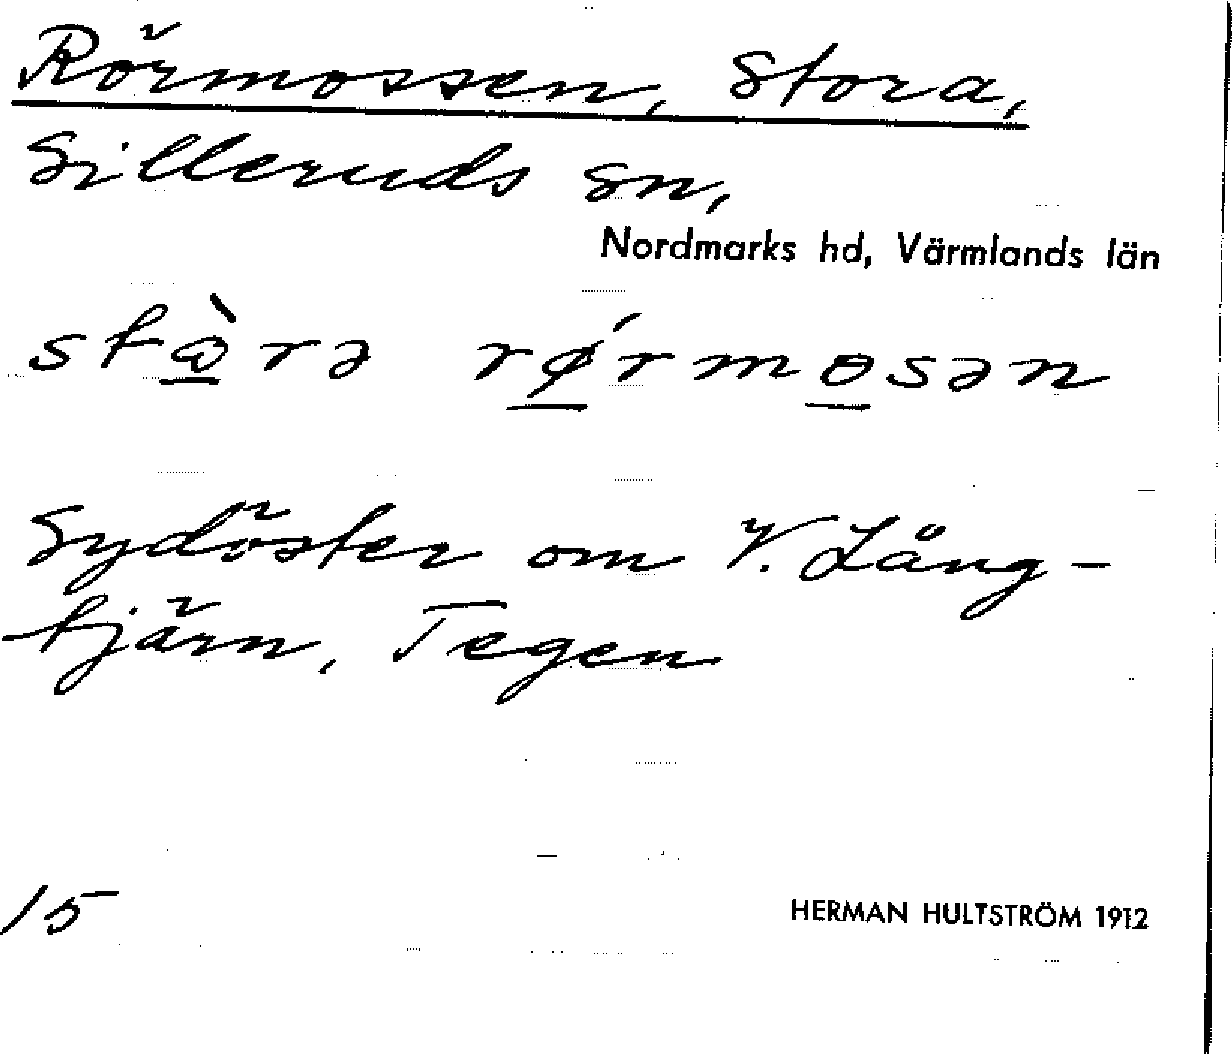 Rörmossen, Stora,
Silleruds sn,
Nordmarks hd, Värmlands län
stὼrə rǿrmosən
Sydöster om V. Lång-
tjärn, Tegen
15
HERMAN HULTSTRÖM 1912